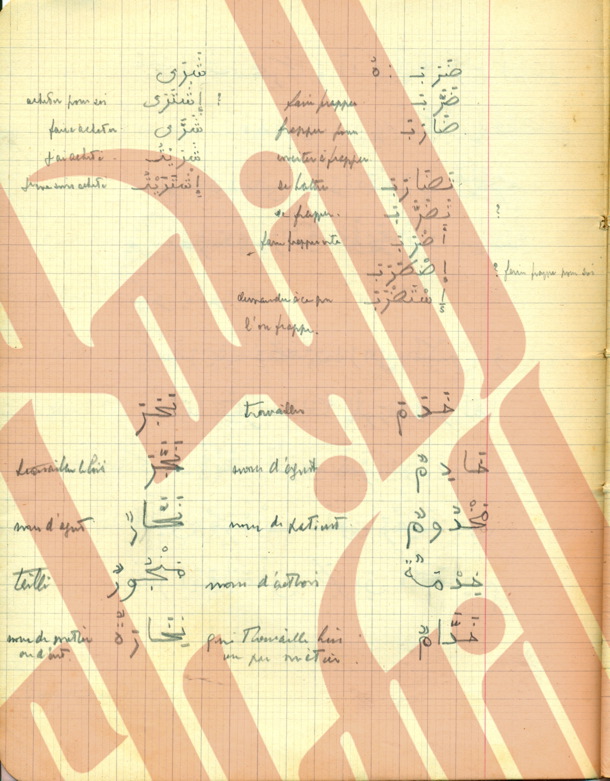 ضَرَبَ : ة شَرَى
ضَرَّبَ faire frapper ! إِشْتَرَى acheter pour soi
ضَارَبَ frapper pour شَرَّى faire acheter
inviter à frapper شَرَيْتُ j'ai acheté
تَضَارَبَ se battre إِشْتَرَيْتُ
? تَضَرَّبَ se frapper.
أَضْرَبَ faire frapper
? faire frapper pour soi إِضْطَرَبَ
إِسْتَضْرَبَ demander à ce que
l'on frappe.
خَدَمَ travailler نَجَرَ
خَادِمٌ nom d'agent نَجَّرَ travailler le bois
مَخْدُومٌ nom de patient نَجَّارٌ nom d'agent
خِدْمَةٌ nom d'action مَنْجُورٌ taillé
خَدَّامٌ qui travaille نِجَارَةٌ nom de métier
un par métier ou d'art.